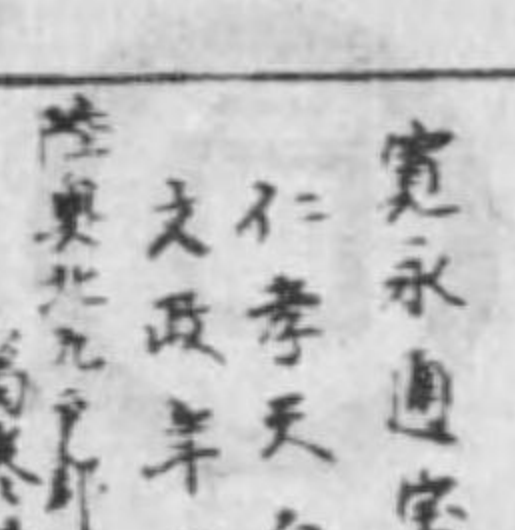 寛永通宝
仁孝天
文政年
陸奥北九戸郡